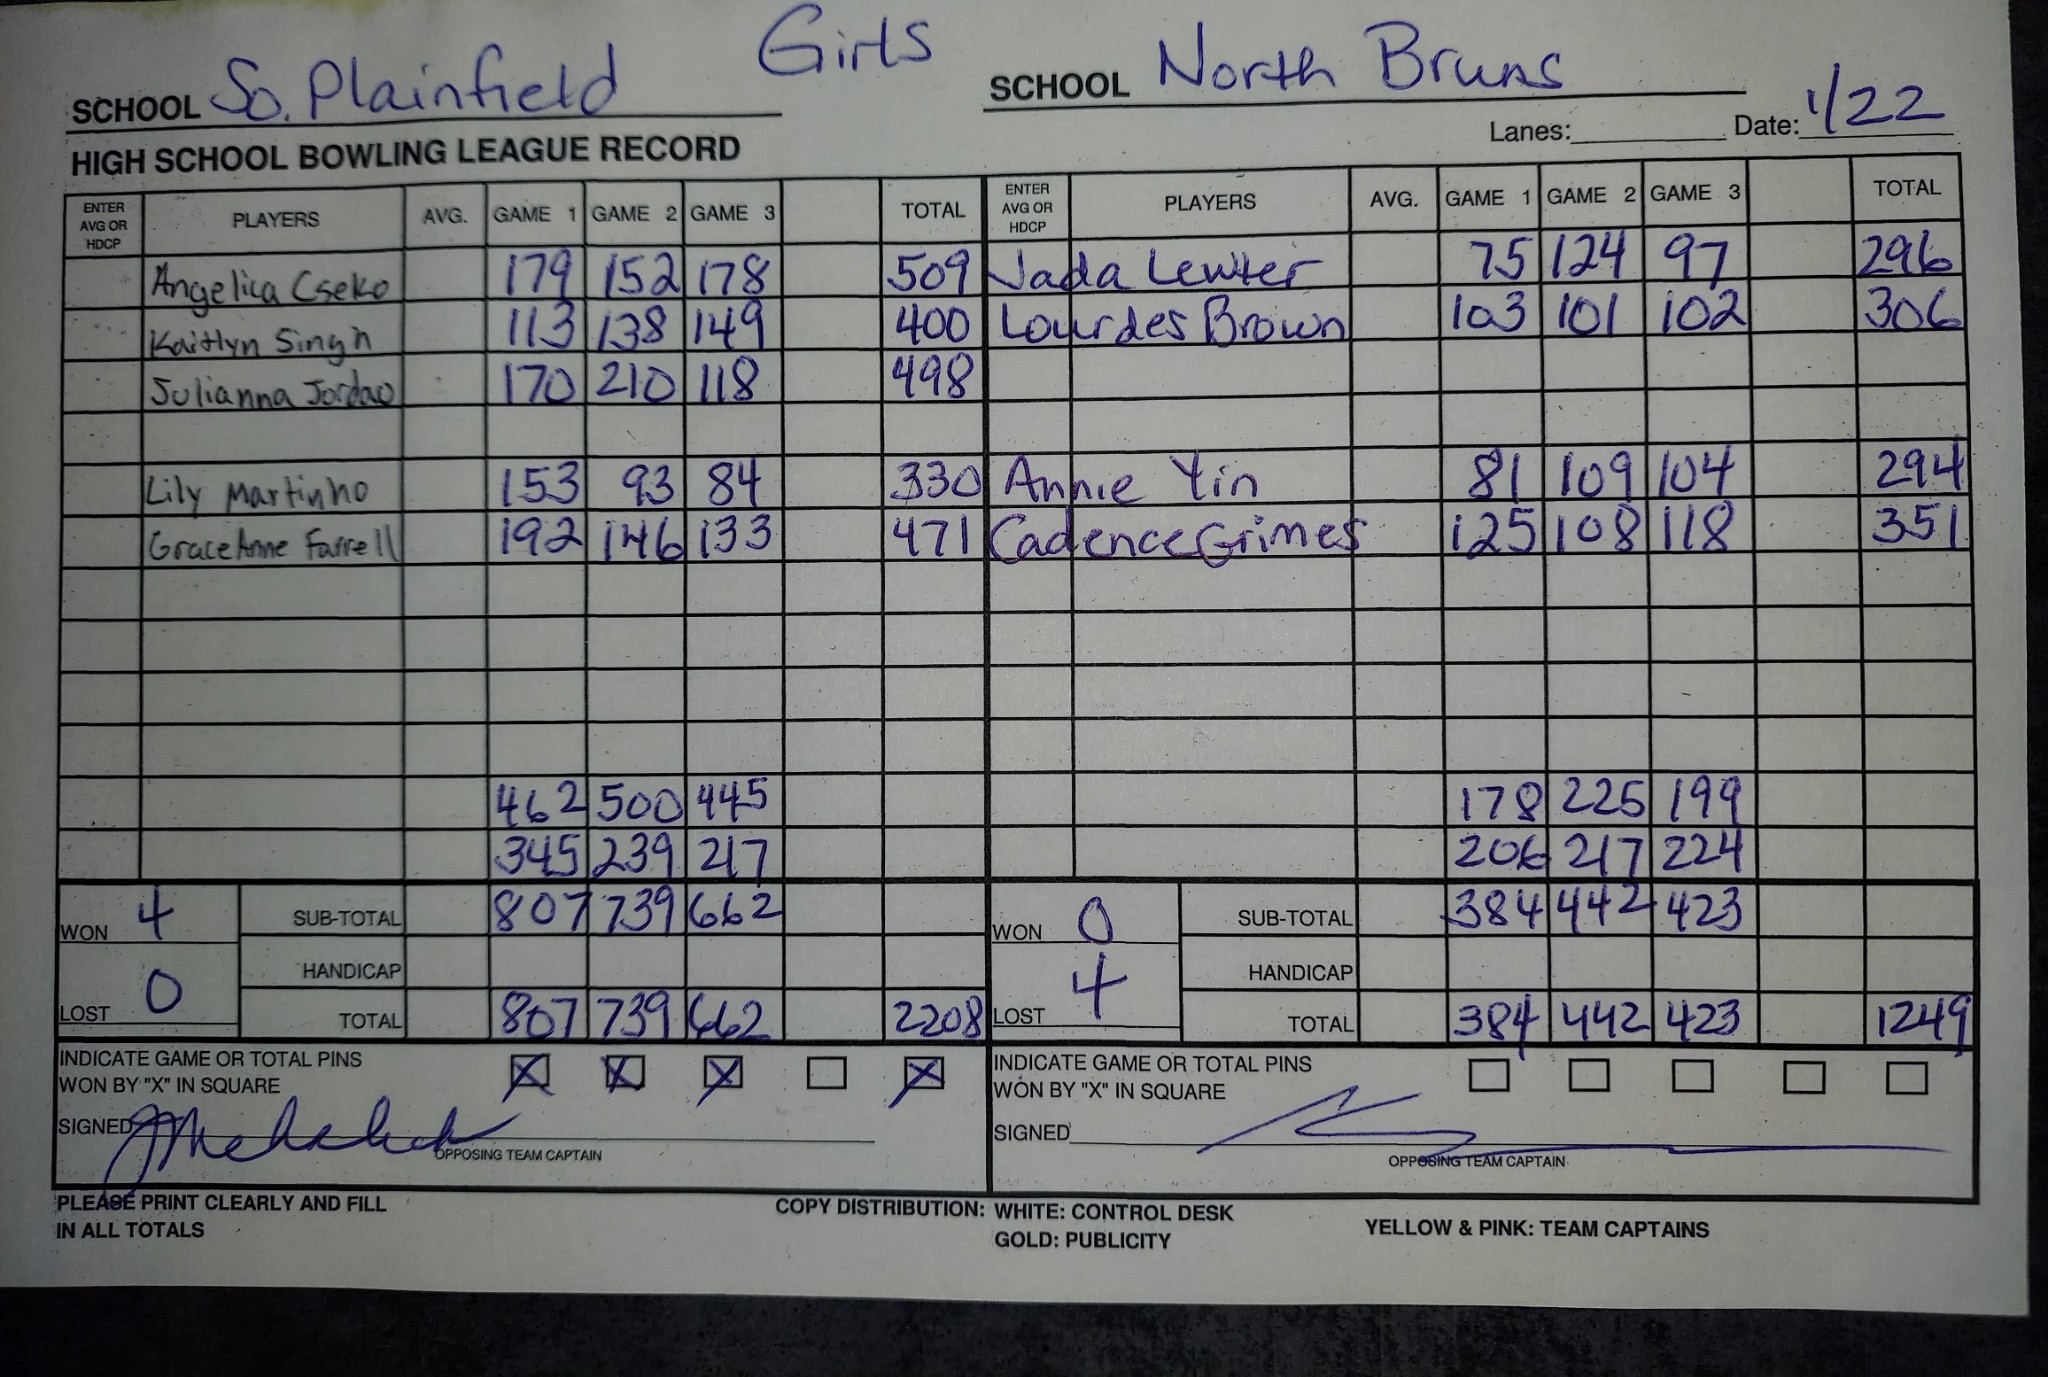 Girls
SCHOOL So. Plainfield SCHOOL North Bruns
Lanes: Date: 1/22
HIGH SCHOOL BOWLING LEAGUE RECORD
ENTER AVG OR HDCP PLAYERS AVG. GAME 1 GAME 2 GAME 3 TOTAL ENTER AVG OR HDCP PLAYERS AVG. GAME 1 GAME 2 GAME 3 TOTAL
Angelica Cseko 179 152 178 509 Jada Lewter 75 124 97 296
Kaitlyn Singh 113 138 149 400 Lourdes Brown 103 101 102 306
Julianna Jordao 170 210 118 498
Lily Martinho 153 93 84 330 Annie Yin 81 109 104 294
GraceAnne Farrell 192 146 133 471 Cadence Grimes 125 108 118 351
462 500 445 178 225 199
345 239 217 206 217 224
WON 4 SUB-TOTAL 807 739 662 WON 0 SUB-TOTAL 384 442 423
HANDICAP HANDICAP
LOST 0 TOTAL 807 739 662 2208 LOST 4 TOTAL 384 442 423 1249
INDICATE GAME OR TOTAL PINS X X X X INDICATE GAME OR TOTAL PINS
WON BY "X" IN SQUARE WON BY "X" IN SQUARE
SIGNED SIGNED
OPPOSING TEAM CAPTAIN OPPOSING TEAM CAPTAIN
PLEASE PRINT CLEARLY AND FILL COPY DISTRIBUTION: WHITE: CONTROL DESK YELLOW & PINK: TEAM CAPTAINS
IN ALL TOTALS GOLD: PUBLICITY